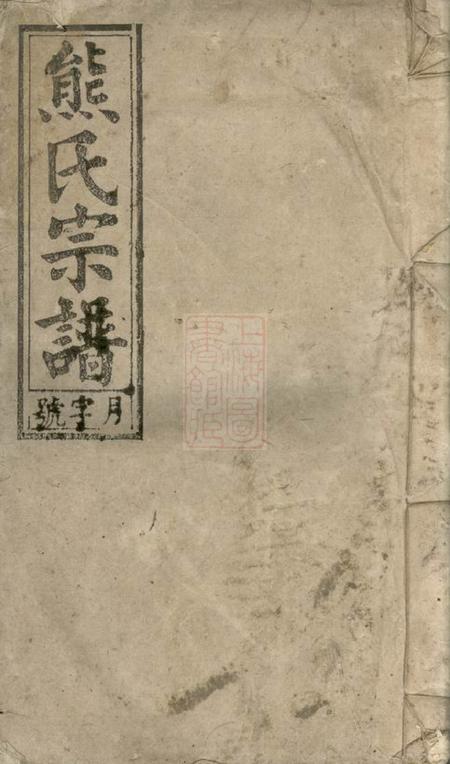 熊氏宗譜
月字號
上海圖書館藏